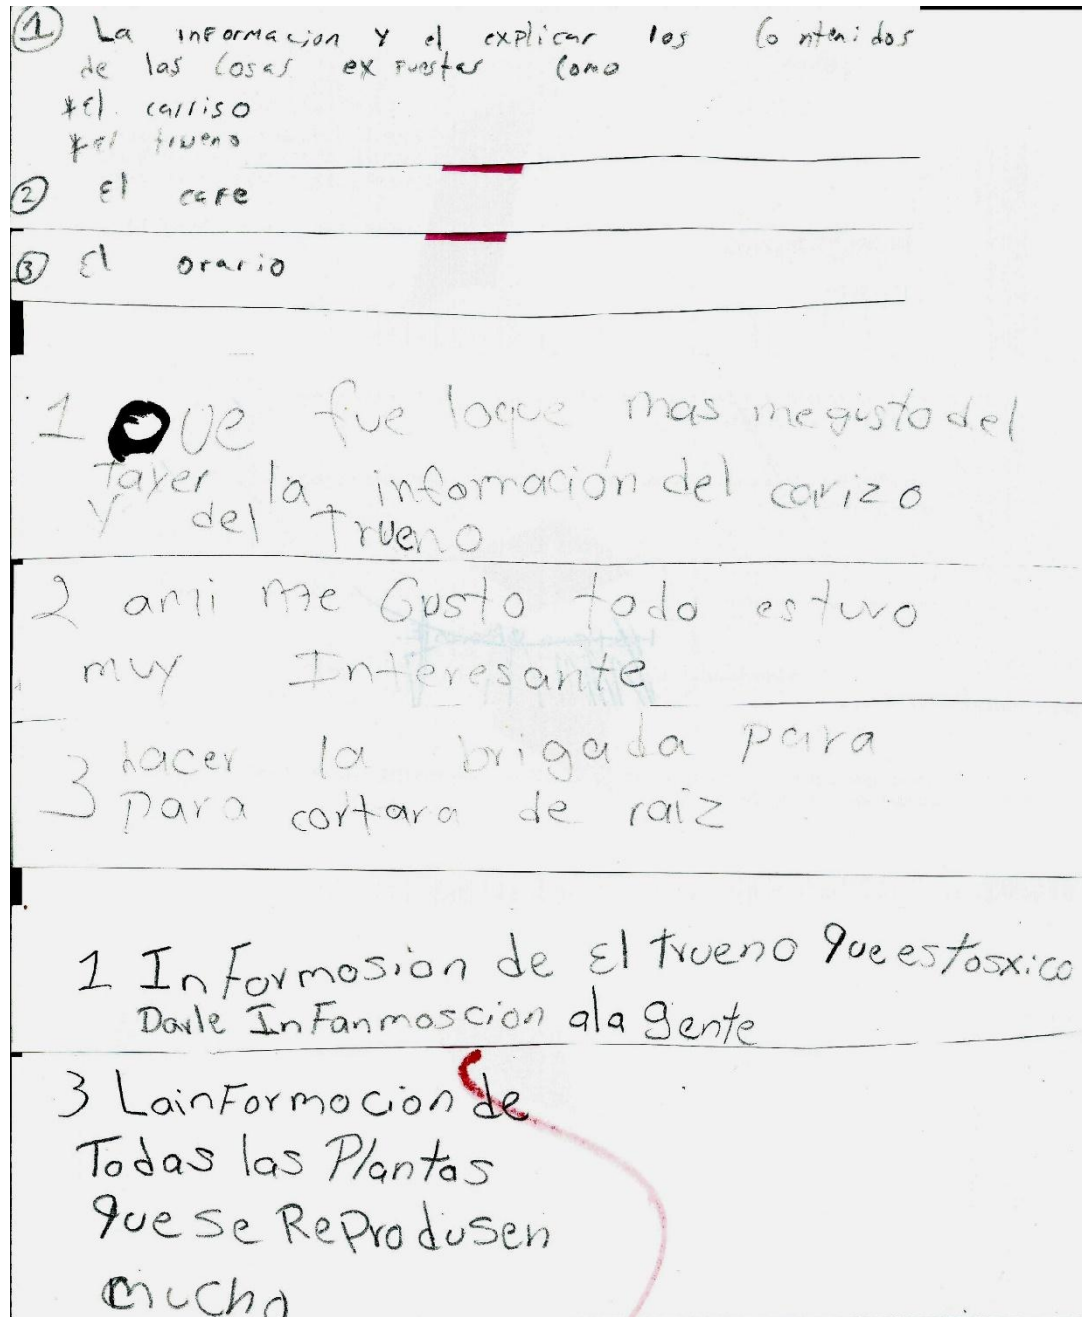 ① La informacion y el explicar los contenidos
de las cosas expuestas como
*el carriso
*el trueno
② El cafe
③ El orario
1 Que fue loque mas megusto del
tayer la información del carizo
y del Trueno
2 ami me Gusto todo estuvo
muy Interesante
3 hacer la brigada para
para cortara de raiz
1 Informosion de El trueno que estosxico
Darle InFanmoscion ala gente
3 LainFormocion de
Todas las Plantas
que se ReProdusen
mucho